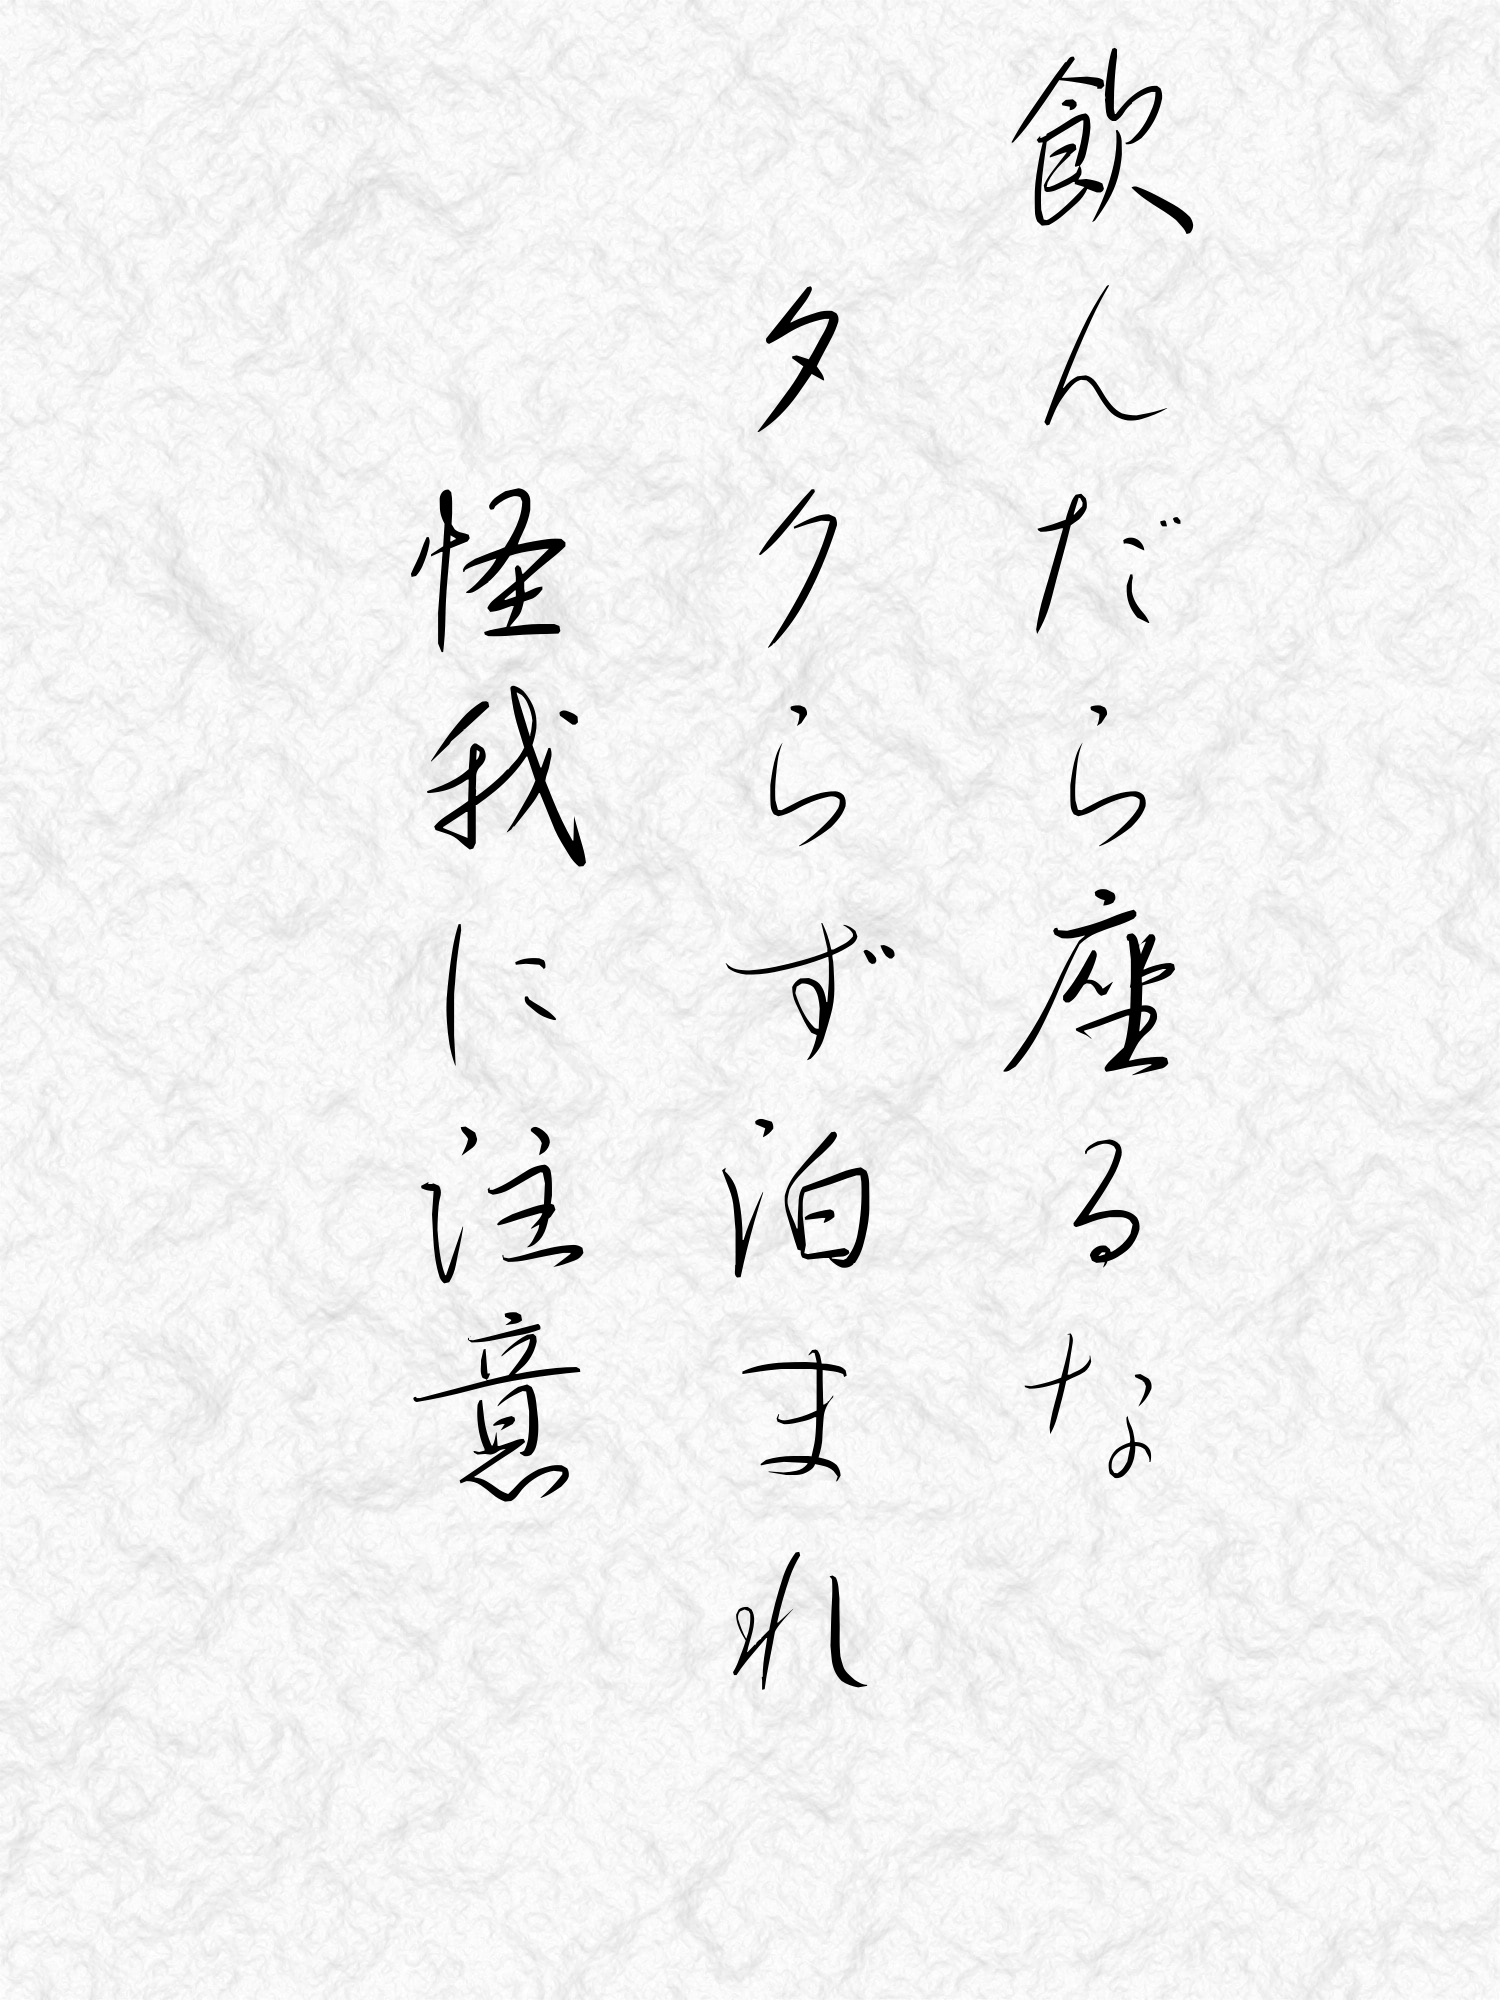 飲んだら座るな
タクらず泊まれ
怪我に注意